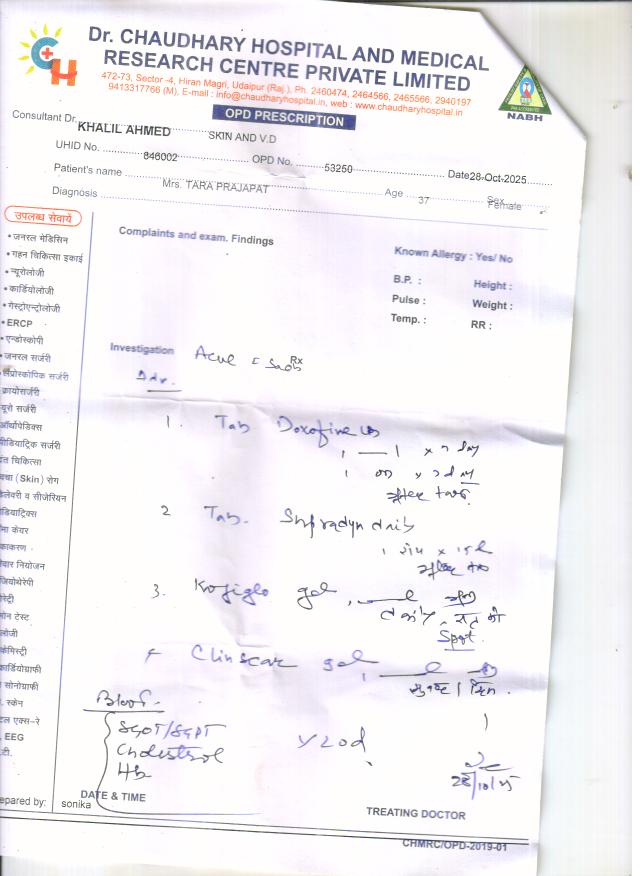 Dr. CHAUDHARY HOSPITAL AND MEDICAL
RESEARCH CENTRE PRIVATE LIMITED
472-73, Sector -4, Hiran Magri, Udaipur (Raj.), Ph. 2460474, 2464566, 2465566, 2940197
9413317766 (M), E-mail : info@chaudharyhospital.in, web : www.chaudharyhospital.in
NABH
OPD PRESCRIPTION
Consultant Dr. KHALIL AHMED SKIN AND V.D
UHID No. 846002 OPD No. 53250 Date 28-Oct-2025
Patient's name Mrs. TARA PRAJAPAT Age 37 Sex Female
Diagnosis
उपलब्ध सेवायें
• जनरल मेडिसिन
• गहन चिकित्सा इकाई
• न्यूरोलोजी
• कार्डियोलोजी
• गेस्ट्रोएन्ट्रोलोजी
• ERCP
• एन्डोस्कोपी
• जनरल सर्जरी
लेप्रोस्कोपिक सर्जरी
क्रायोसर्जरी
यूरो सर्जरी
ऑर्थोपेडिक्स
पीडियाट्रिक सर्जरी
दंत चिकित्सा
त्वचा (Skin) रोग
डिलेवरी व सीजेरियन
पीडियाट्रिक्स
केयर
टीकाकरण
परिवार नियोजन
फिजियोथेरेपी
टेस्ट
कार्डियोग्राफी
सोनोग्राफी
स्केन
एक्स-रे
EEG
टी.
Complaints and exam. Findings
Known Allergy : Yes/ No
B.P. : Height :
Pulse : Weight :
Temp. : RR :
Investigation Rx
Adv.
1. Tab Doxofine
1 — 1 x 7 day
1 x 7 day
2 Tab. Supradyn daily
3. Kojiglo gel
daily रात को
Spot
4 Clinscar gel
Blood
SGOT/SGPT
Cholesterol
Hb
28/10/25
DATE & TIME
Prepared by: sonika
TREATING DOCTOR
CHMRC/OPD-2019-01